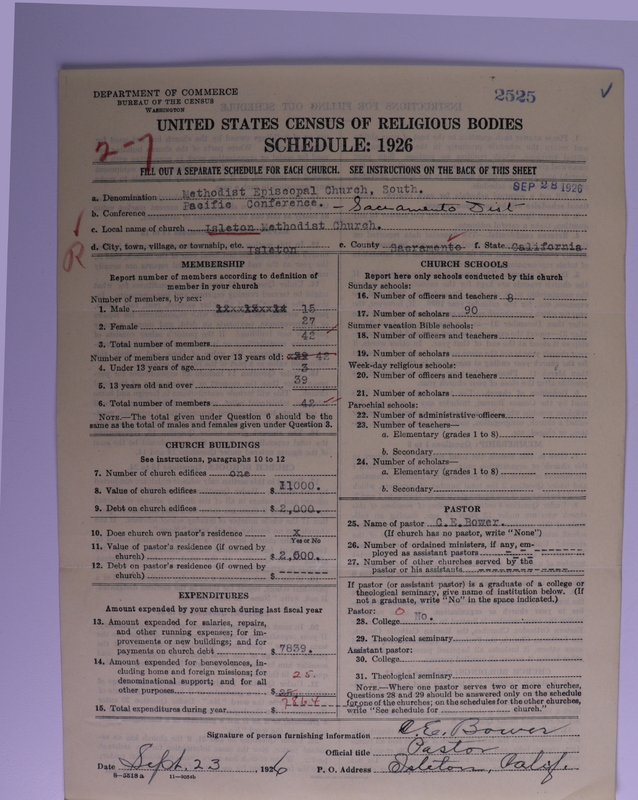 DEPARTMENT OF COMMERCE
BUREAU OF THE CENSUS
WASHINGTON
2525
UNITED STATES CENSUS OF RELIGIOUS BODIES
SCHEDULE: 1926
2-7
FILL OUT A SEPARATE SCHEDULE FOR EACH CHURCH. SEE INSTRUCTIONS ON THE BACK OF THIS SHEET
SEP 28 1926
a. Denomination Methodist Episcopal Church, South.
b. Conference Pacific Conference. - Sacramento Dist
c. Local name of church Isleton Methodist Church.
R
d. City, town, village, or township, etc. Isleton e. County Sacramento f. State California
MEMBERSHIP
Report number of members according to definition of member in your church
Number of members, by sex:
1. Male 15
2. Female 27
3. Total number of members 42
Number of members under and over 13 years old: 42
4. Under 13 years of age 3
5. 13 years old and over 39
6. Total number of members 42
NOTE.—The total given under Question 6 should be the
same as the total of males and females given under Question 3.
CHURCH BUILDINGS
See instructions, paragraphs 10 to 12
7. Number of church edifices one
8. Value of church edifices $ 11000.
9. Debt on church edifices $ 2,000.
10. Does church own pastor's residence x
Yes or No
11. Value of pastor's residence (if owned by
church) $ 2,500.
12. Debt on pastor's residence (if owned by
church) $ -------
EXPENDITURES
Amount expended by your church during last fiscal year
13. Amount expended for salaries, repairs,
and other running expenses; for im-
provements or new buildings; and for
payments on church debt $ 7839.
14. Amount expended for benevolences, in-
cluding home and foreign missions; for
denominational support; and for all
other purposes $ 25.
25.
15. Total expenditures during year $ 7864
CHURCH SCHOOLS
Report here only schools conducted by this church
Sunday schools:
16. Number of officers and teachers 8
17. Number of scholars 90
Summer vacation Bible schools:
18. Number of officers and teachers
19. Number of scholars
Week-day religious schools:
20. Number of officers and teachers
21. Number of scholars
Parochial schools:
22. Number of administrative officers
23. Number of teachers—
a. Elementary (grades 1 to 8)
b. Secondary
24. Number of scholars—
a. Elementary (grades 1 to 8)
b. Secondary
PASTOR
25. Name of pastor C.E.Bower.
(If church has no pastor, write "None")
26. Number of ordained ministers, if any, em-
ployed as assistant pastors
27. Number of other churches served by the
pastor or his assistants
If pastor (or assistant pastor) is a graduate of a college or
theological seminary, give name of institution below. (If
not a graduate, write "No" in the space indicated.)
Pastor: O
28. College No.
29. Theological seminary
Assistant pastor:
30. College
31. Theological seminary
NOTE.—Where one pastor serves two or more churches,
Questions 28 and 29 should be answered only on the schedule
for one of the churches; on the schedules for the other churches,
write "See schedule for church."
Signature of person furnishing information C.E. Bower
Official title Pastor
Date Sept. 23, 1926 P. O. Address Isleton, Calif.
8-3318a 11-9084b